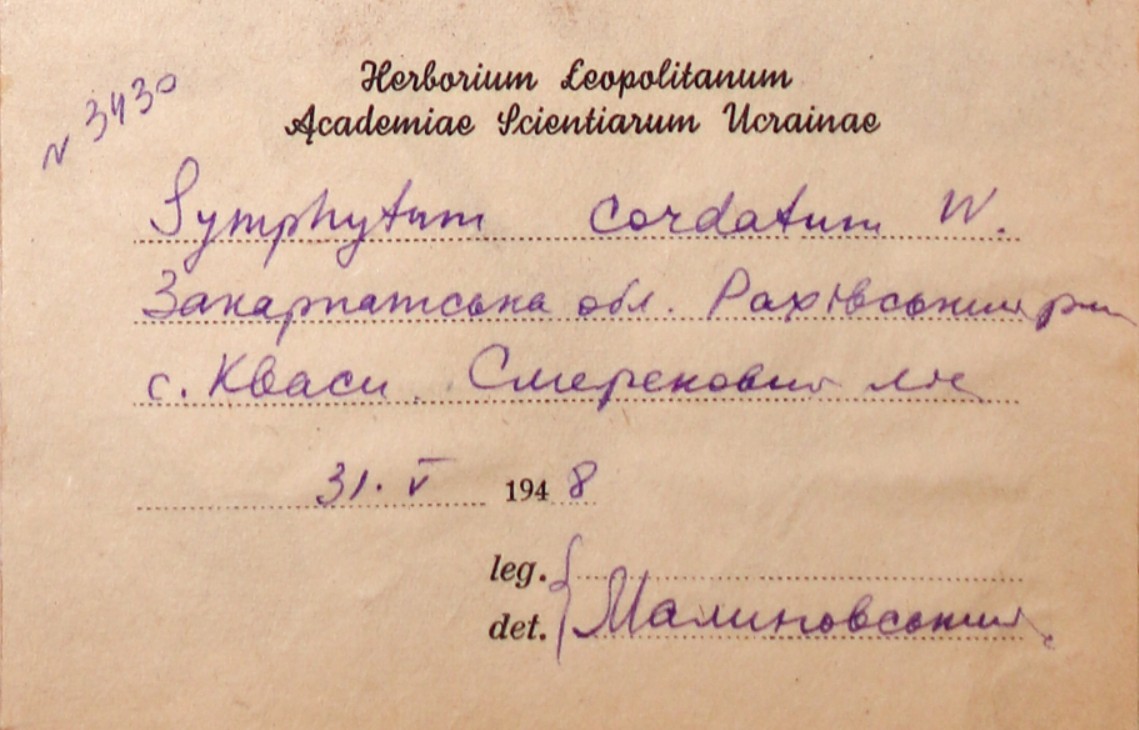 N 3430
Herborium Leopolitanum
Academiae Scientiarum Ucrainae
Symphytum cordatum W.
Закарпатська обл. Рахівський рн
с. Кваси. Смерековий ліс
31. V 1948
leg.
det. Малиновський